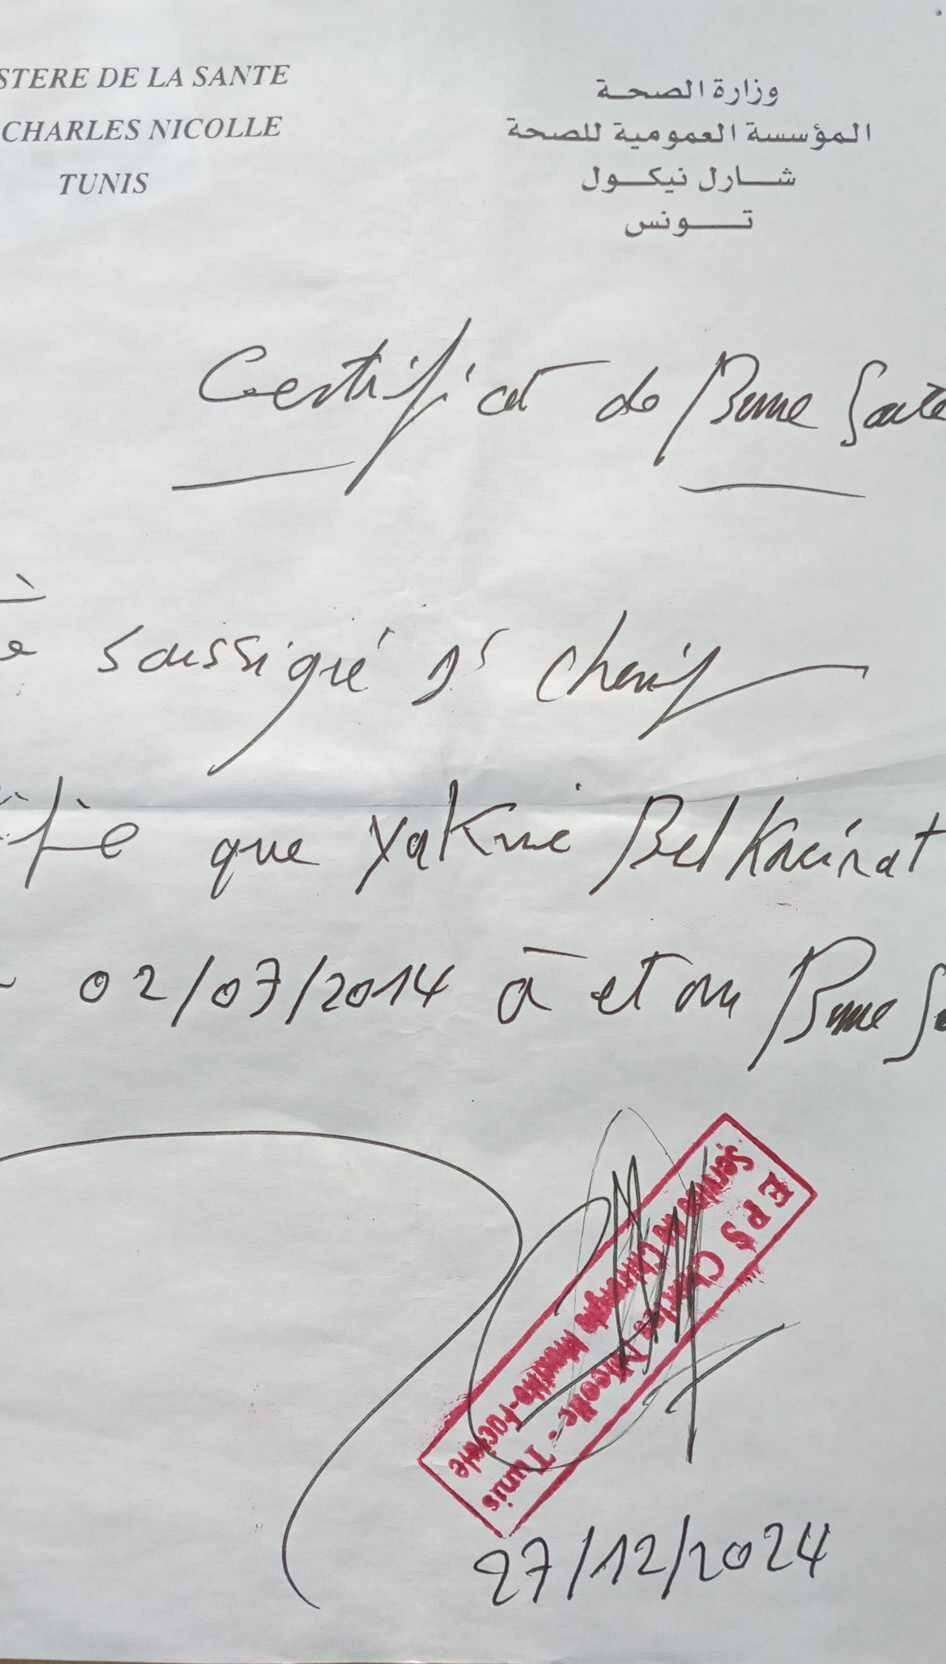 STERE DE LA SANTE
CHARLES NICOLLE
TUNIS
وزارة الصحة
المؤسسة العمومية للصحة
شارل نيكول
تونس
Certificat de Bonne Sante
soussigné Dr Cherif
que
02/07/2014 à et en Bonne
EPS Charles Nicolle - Tunis
Service de Chirurgie Maxillo-Faciale
27/12/2024